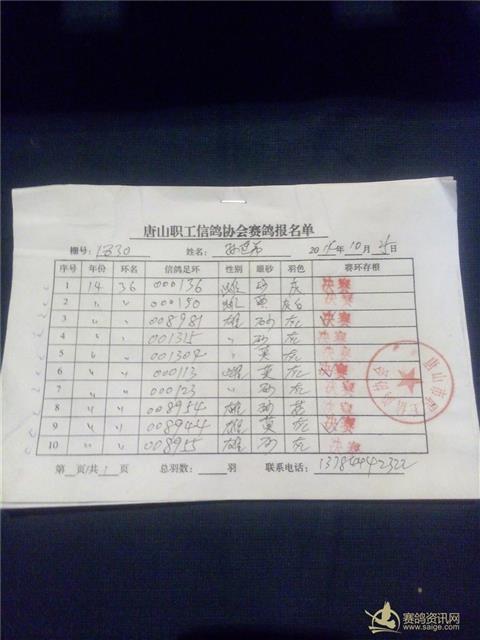 唐山职工信鸽协会赛鸽报名单
棚号: 1330 姓名: 2014年10月25日
序号 年份 环名 信鸽足环 性别 眼砂 羽色 赛环存根
1 14 36 000136 雌 砂 灰 决赛
2 〃 〃 000150 雌 黄 决赛
3 〃 〃 008981 雄 砂 灰 决赛
4 〃 〃 001315 〃 砂 灰 决赛
5 〃 〃 001302 〃 黄 灰 决赛
6 〃 〃 000113 雌 黄 灰 决赛
7 〃 〃 000123 〃 砂 灰 决赛
8 〃 〃 008954 雄 砂 决赛
9 〃 〃 008944 雄 黄 灰 决赛
10 〃 〃 008955 雄 砂 灰 决赛
唐山市 信鸽协会
第 页/共 1 页 总羽数: 羽 联系电话:
赛鸽资讯网
www.saige.com